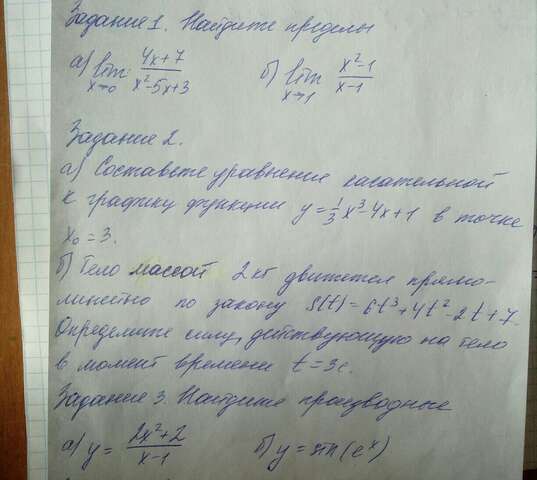 Задание 1. Найдите пределы
а) lim x→0 (4x+7)/(x²-5x+3) б) lim x→1 (x²-1)/(x-1)
Задание 2.
а) Составьте уравнение касательной
к графику функции y = 1/3 x³-4x+1 в точке
x₀ = 3.
б) Тело массой 2 кг движется прямо-
линейно по закону S(t)=6t³+4t²-2t+7.
Определите силу, действующую на тело
в момент времени t=3с.
Задание 3. Найдите производные
а) y = (2x²+2)/(x-1) б) y = sin(eˣ)